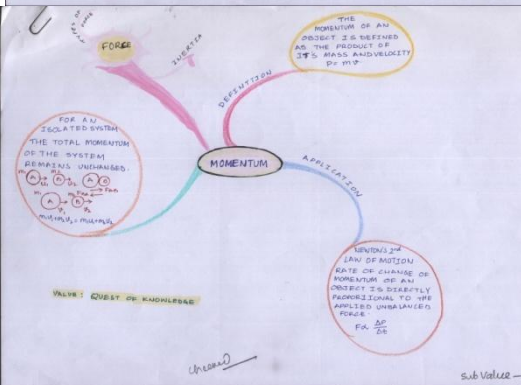 FORCE
INERTIA
DEFINITION
THE
MOMENTUM OF AN
OBJECT IS DEFINED
AS THE PRODUCT OF
IT'S MASS AND VELOCITY
P = mv
FOR AN
ISOLATED SYSTEM
THE TOTAL MOMENTUM
OF THE SYSTEM
REMAINS UNCHANGED.
A B A B
A B
MOMENTUM
APPLICATION
NEWTON'S 2nd
LAW OF MOTION
RATE OF CHANGE OF
MOMENTUM OF AN
OBJECT IS DIRECTLY
PROPORTIONAL TO THE
APPLIED UNBALANCED
FORCE.
F∝ ΔP/Δt
VALUE: QUEST OF KNOWLEDGE
Sub Value -